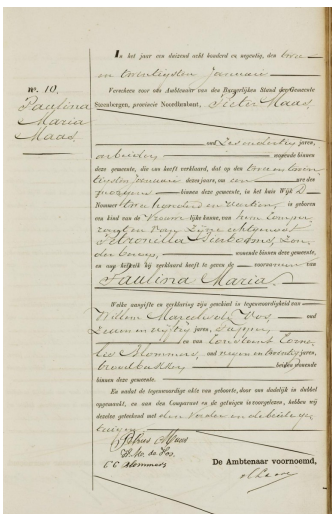 In het jaar een duizend acht honderd en negentig, den twee
en twintigsten januari
Verscheen voor ons Ambtenaar van den Burgerlijken Stand der Gemeente
Steenbergen, provincie Noordbrabant, Pieter Maas,
No. 10.
Paulina
Maria
Maas
oud zes en dertig jaren,
arbeider wonende binnen
deze gemeente, die ons heeft verklaard, dat op den twee en twin
tigsten januari dezes jaars, om een ure des
morgens binnen deze gemeente, in het huis Wijk D
Nommer twee honderd en veertien, is geboren
een kind van de Vrouwelijke kunne, van hem Compa-
rant en van zijne echtgenoot
Petronella zon-
der beroep, wonende binnen deze gemeente,
en nog heeft hij verklaard heeft te geven de voornamen van
Paulina Maria.
Welke aangifte en verklaring zijn geschied in tegenwoordigheid van
Willem Marcelis de Vos, oud
jaren,
en van Constant Corne-
lis Blommers, oud negen en twintig jaren,
broodbakker, beiden wonende
binnen deze gemeente.
En nadat de tegenwoordige akte van geboorte, daar van dadelijk in dubbel
opgemaakt, en aan den Comparant en de getuigen is voorgelezen, hebben wij
dezelve geteekend met den Vader en de beide ge-
tuigen
Maas
W. M. de Vos.
C C Blommers
De Ambtenaar voornoemd,